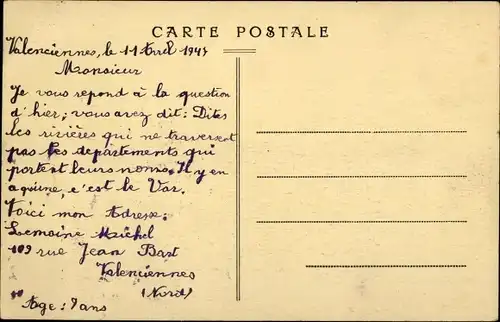 CARTE POSTALE
Valenciennes, le 11 Avril 194
Monsieur
Je vous repond à la question
d'hier; vous avez dit: Dites
les rivières qui ne traversent
pas les departements qui
portent leurs noms. Il y en
a qu'une, c'est le Var.
Voici mon Adresse:
Lemoine Michel
109 rue Jean Bart
Valenciennes
(Nord)
Age: 9 ans